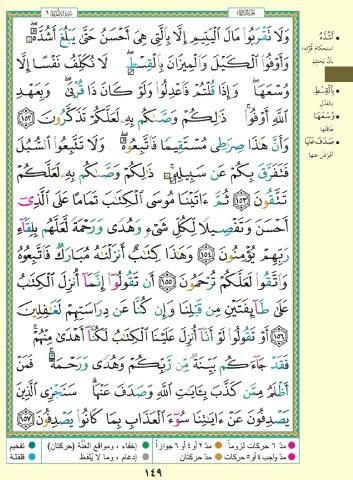 وَلَا تَقْرَبُوا۟ مَالَ ٱلْيَتِيمِ إِلَّا بِٱلَّتِى هِىَ أَحْسَنُ حَتَّىٰ يَبْلُغَ أَشُدَّهُۥ
وَأَوْفُوا۟ ٱلْكَيْلَ وَٱلْمِيزَانَ بِٱلْقِسْطِ لَا نُكَلِّفُ نَفْسًا إِلَّا
وُسْعَهَا وَإِذَا قُلْتُمْ فَٱعْدِلُوا۟ وَلَوْ كَانَ ذَا قُرْبَىٰ وَبِعَهْدِ
ٱللَّهِ أَوْفُوا۟ ذَٰلِكُمْ وَصَّىٰكُم بِهِۦ لَعَلَّكُمْ تَذَكَّرُونَ ١٥٢
وَأَنَّ هَٰذَا صِرَٰطِى مُسْتَقِيمًا فَٱتَّبِعُوهُ وَلَا تَتَّبِعُوا۟ ٱلسُّبُلَ
فَتَفَرَّقَ بِكُمْ عَن سَبِيلِهِۦ ذَٰلِكُمْ وَصَّىٰكُم بِهِۦ لَعَلَّكُمْ
تَتَّقُونَ ١٥٣ ثُمَّ ءَاتَيْنَا مُوسَى ٱلْكِتَٰبَ تَمَامًا عَلَى ٱلَّذِىٓ
أَحْسَنَ وَتَفْصِيلًا لِّكُلِّ شَىْءٍ وَهُدًى وَرَحْمَةً لَّعَلَّهُم بِلِقَآءِ
رَبِّهِمْ يُؤْمِنُونَ ١٥٤ وَهَٰذَا كِتَٰبٌ أَنزَلْنَٰهُ مُبَارَكٌ فَٱتَّبِعُوهُ
وَٱتَّقُوا۟ لَعَلَّكُمْ تُرْحَمُونَ ١٥٥ أَن تَقُولُوٓا۟ إِنَّمَآ أُنزِلَ ٱلْكِتَٰبُ
عَلَىٰ طَآئِفَتَيْنِ مِن قَبْلِنَا وَإِن كُنَّا عَن دِرَاسَتِهِمْ لَغَٰفِلِينَ
١٥٦ أَوْ تَقُولُوا۟ لَوْ أَنَّآ أُنزِلَ عَلَيْنَا ٱلْكِتَٰبُ لَكُنَّآ أَهْدَىٰ مِنْهُمْ
فَقَدْ جَآءَكُم بَيِّنَةٌ مِّن رَّبِّكُمْ وَهُدًى وَرَحْمَةٌ فَمَنْ
أَظْلَمُ مِمَّن كَذَّبَ بِـَٔايَٰتِ ٱللَّهِ وَصَدَفَ عَنْهَا سَنَجْزِى ٱلَّذِينَ
يَصْدِفُونَ عَنْ ءَايَٰتِنَا سُوٓءَ ٱلْعَذَابِ بِمَا كَانُوا۟ يَصْدِفُونَ ١٥٧
أَشُدَّهُ
استحكام قوّته؛
بأن يحتلم
بِالقِسْطِ
بالعدل
وُسْعَهَا
طاقتها
صَدَفَ عَنْهَا
أعرض عنها
مدّ ٦ حركات لزوماً مدّ ٢ أو ٤ أو ٦ جوازاً إخفاء، ومواقع الغُنّة (حركتان) تفخيم
مدّ واجب ٤ أو ٥ حركات مدّ حركتان إدغام، وما لا يُلفظ قلقلة
١٤٩